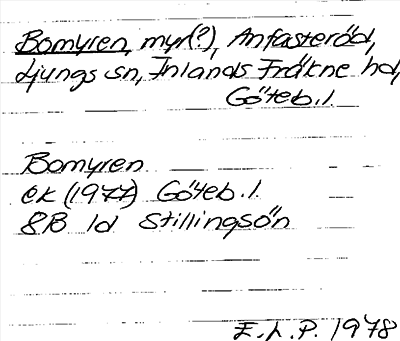 Bomyren, myr(?), Anfasteröd,
Ljungs sn, Inlands Fräkne hd,
Göteb.l.
Bomyren
ek (1977) Göteb.l.
8B 1d Stillingsön
E.L.P. 1978